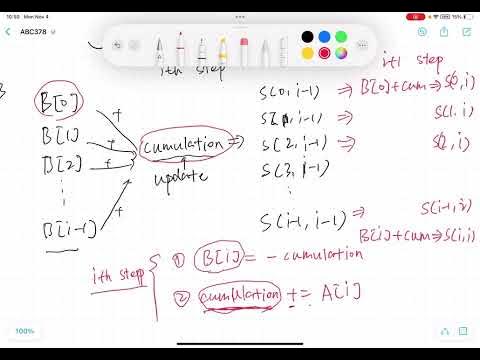 10:50 Mon Nov 4
15%
ABC378
ith step
i+1 step
B[0]
+
S(0, i-1) ⇒ B[0]+cum ⇒ S(0, i)
B[1]
+
S(1, i-1) ⇒ S(1, i)
cumulation ⇒
B[2]
+
S(2, i-1) ⇒ S(2, i)
update
S(3, i-1)
⋮
⋮
B[i-1]
+
S(i-1, i-1) ⇒ S(i-1, i)
B[i]+cum ⇒ S(i, i)
ith step
① B[i] = - cumulation
② cumulation += A[i]
100%